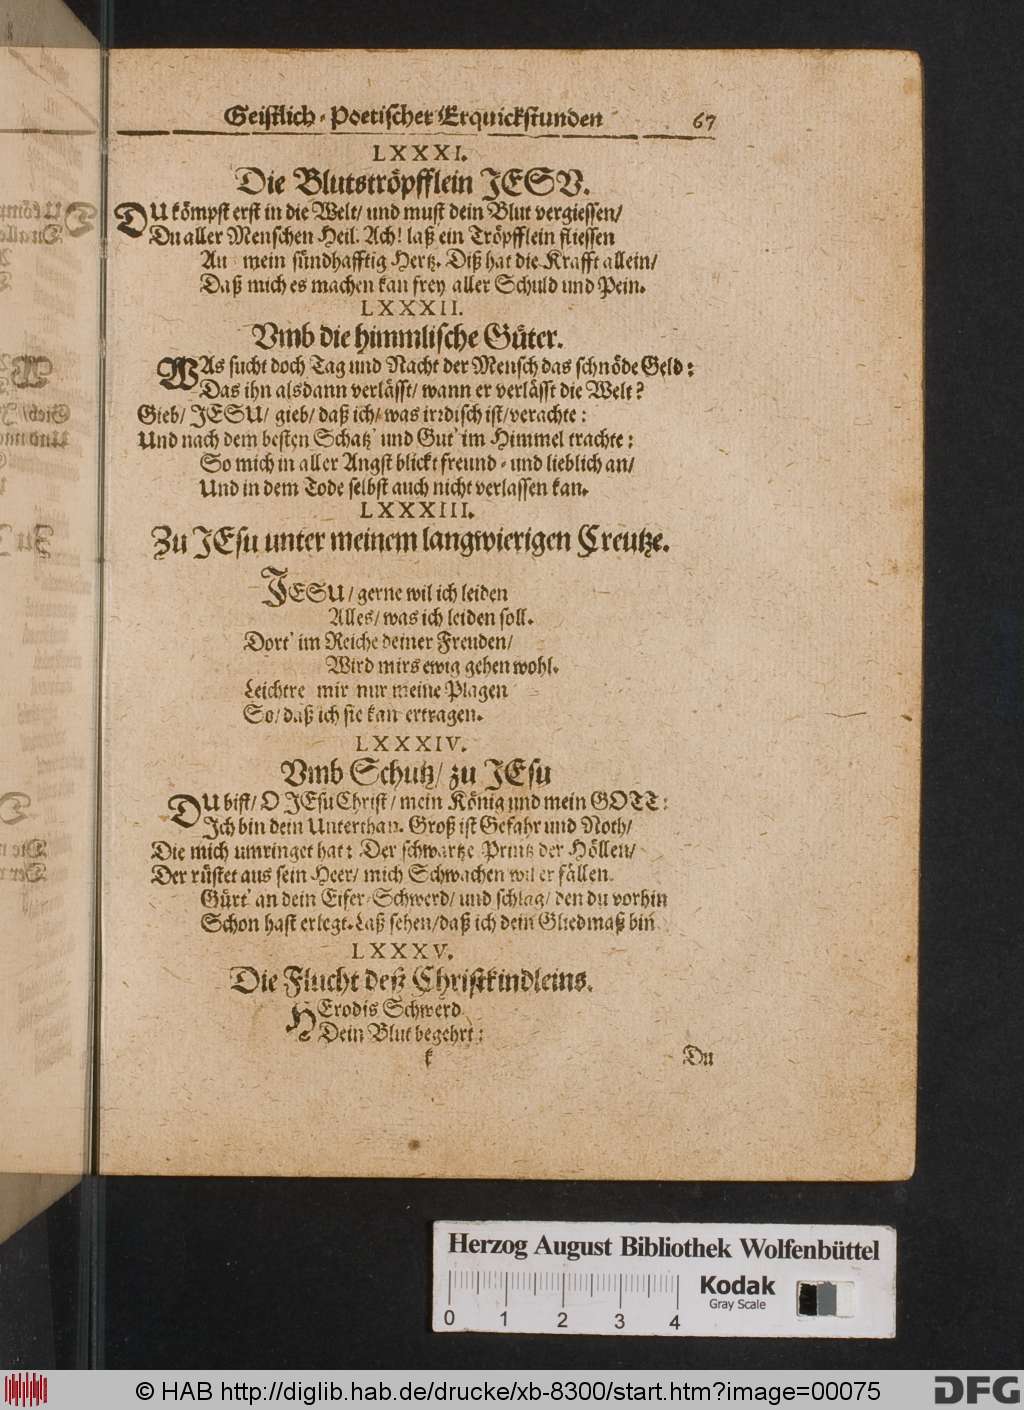 Geistlich-Poetischer Erquickstunden 67
LXXXI.
Die Blutströpfflein JESV.
DU kömpst erst in die Welt/ und must dein Blut vergiessen/
Du aller Menschen Heil. Ach! laß ein Tröpfflein fliessen
Au mein sündhafftig Hertz. Diß hat die Krafft allein/
Daß mich es machen kan frey aller Schuld und Pein.
LXXXII.
Vmb die himmlische Güter.
WAs sucht doch Tag und Nacht der Mensch das schnöde Geld:
Das ihn alsdann verlässt/ wann er verlässt die Welt?
Gieb/ JESU/ gieb/ daß ich/ was irrdisch ist/ verachte:
Und nach dem besten Schatz' und Gut' im Himmel trachte:
So mich in aller Angst blickt freund- und lieblich an/
Und in dem Tode selbst auch nicht verlassen kan.
LXXXIII.
Zu JEsu unter meinem langwierigen Creutze.
JESU/ gerne wil ich leiden
Alles/ was ich leiden soll.
Dort' im Reiche deiner Freuden/
Wird mirs ewig gehen wohl.
Leichtre mir nur meine Plagen
So/ daß ich sie kan ertragen.
LXXXIV.
Vmb Schutz/ zu JEsu
DU bist/ O JEsu Christ/ mein König und mein GOTT:
Ich bin dein Unterthan. Groß ist Gefahr und Noth/
Die mich umringet hat: Der schwartze Printz der Höllen/
Der rüstet aus sein Heer/ mich Schwachen wil er fällen.
Gürt' an dein Eifer-Schwerd/ und schlag/ den du vorhin
Schon hast erlegt. Laß sehen/ daß ich dein Gliedmaß bin
LXXXV.
Die Flucht deß Christkindleins.
HErodis Schwerd
Dein Blut begehrt:
k Du
Herzog August Bibliothek Wolfenbüttel
Kodak
Gray Scale
0 1 2 3 4
© HAB http://diglib.hab.de/drucke/xb-8300/start.htm?image=00075
DFG